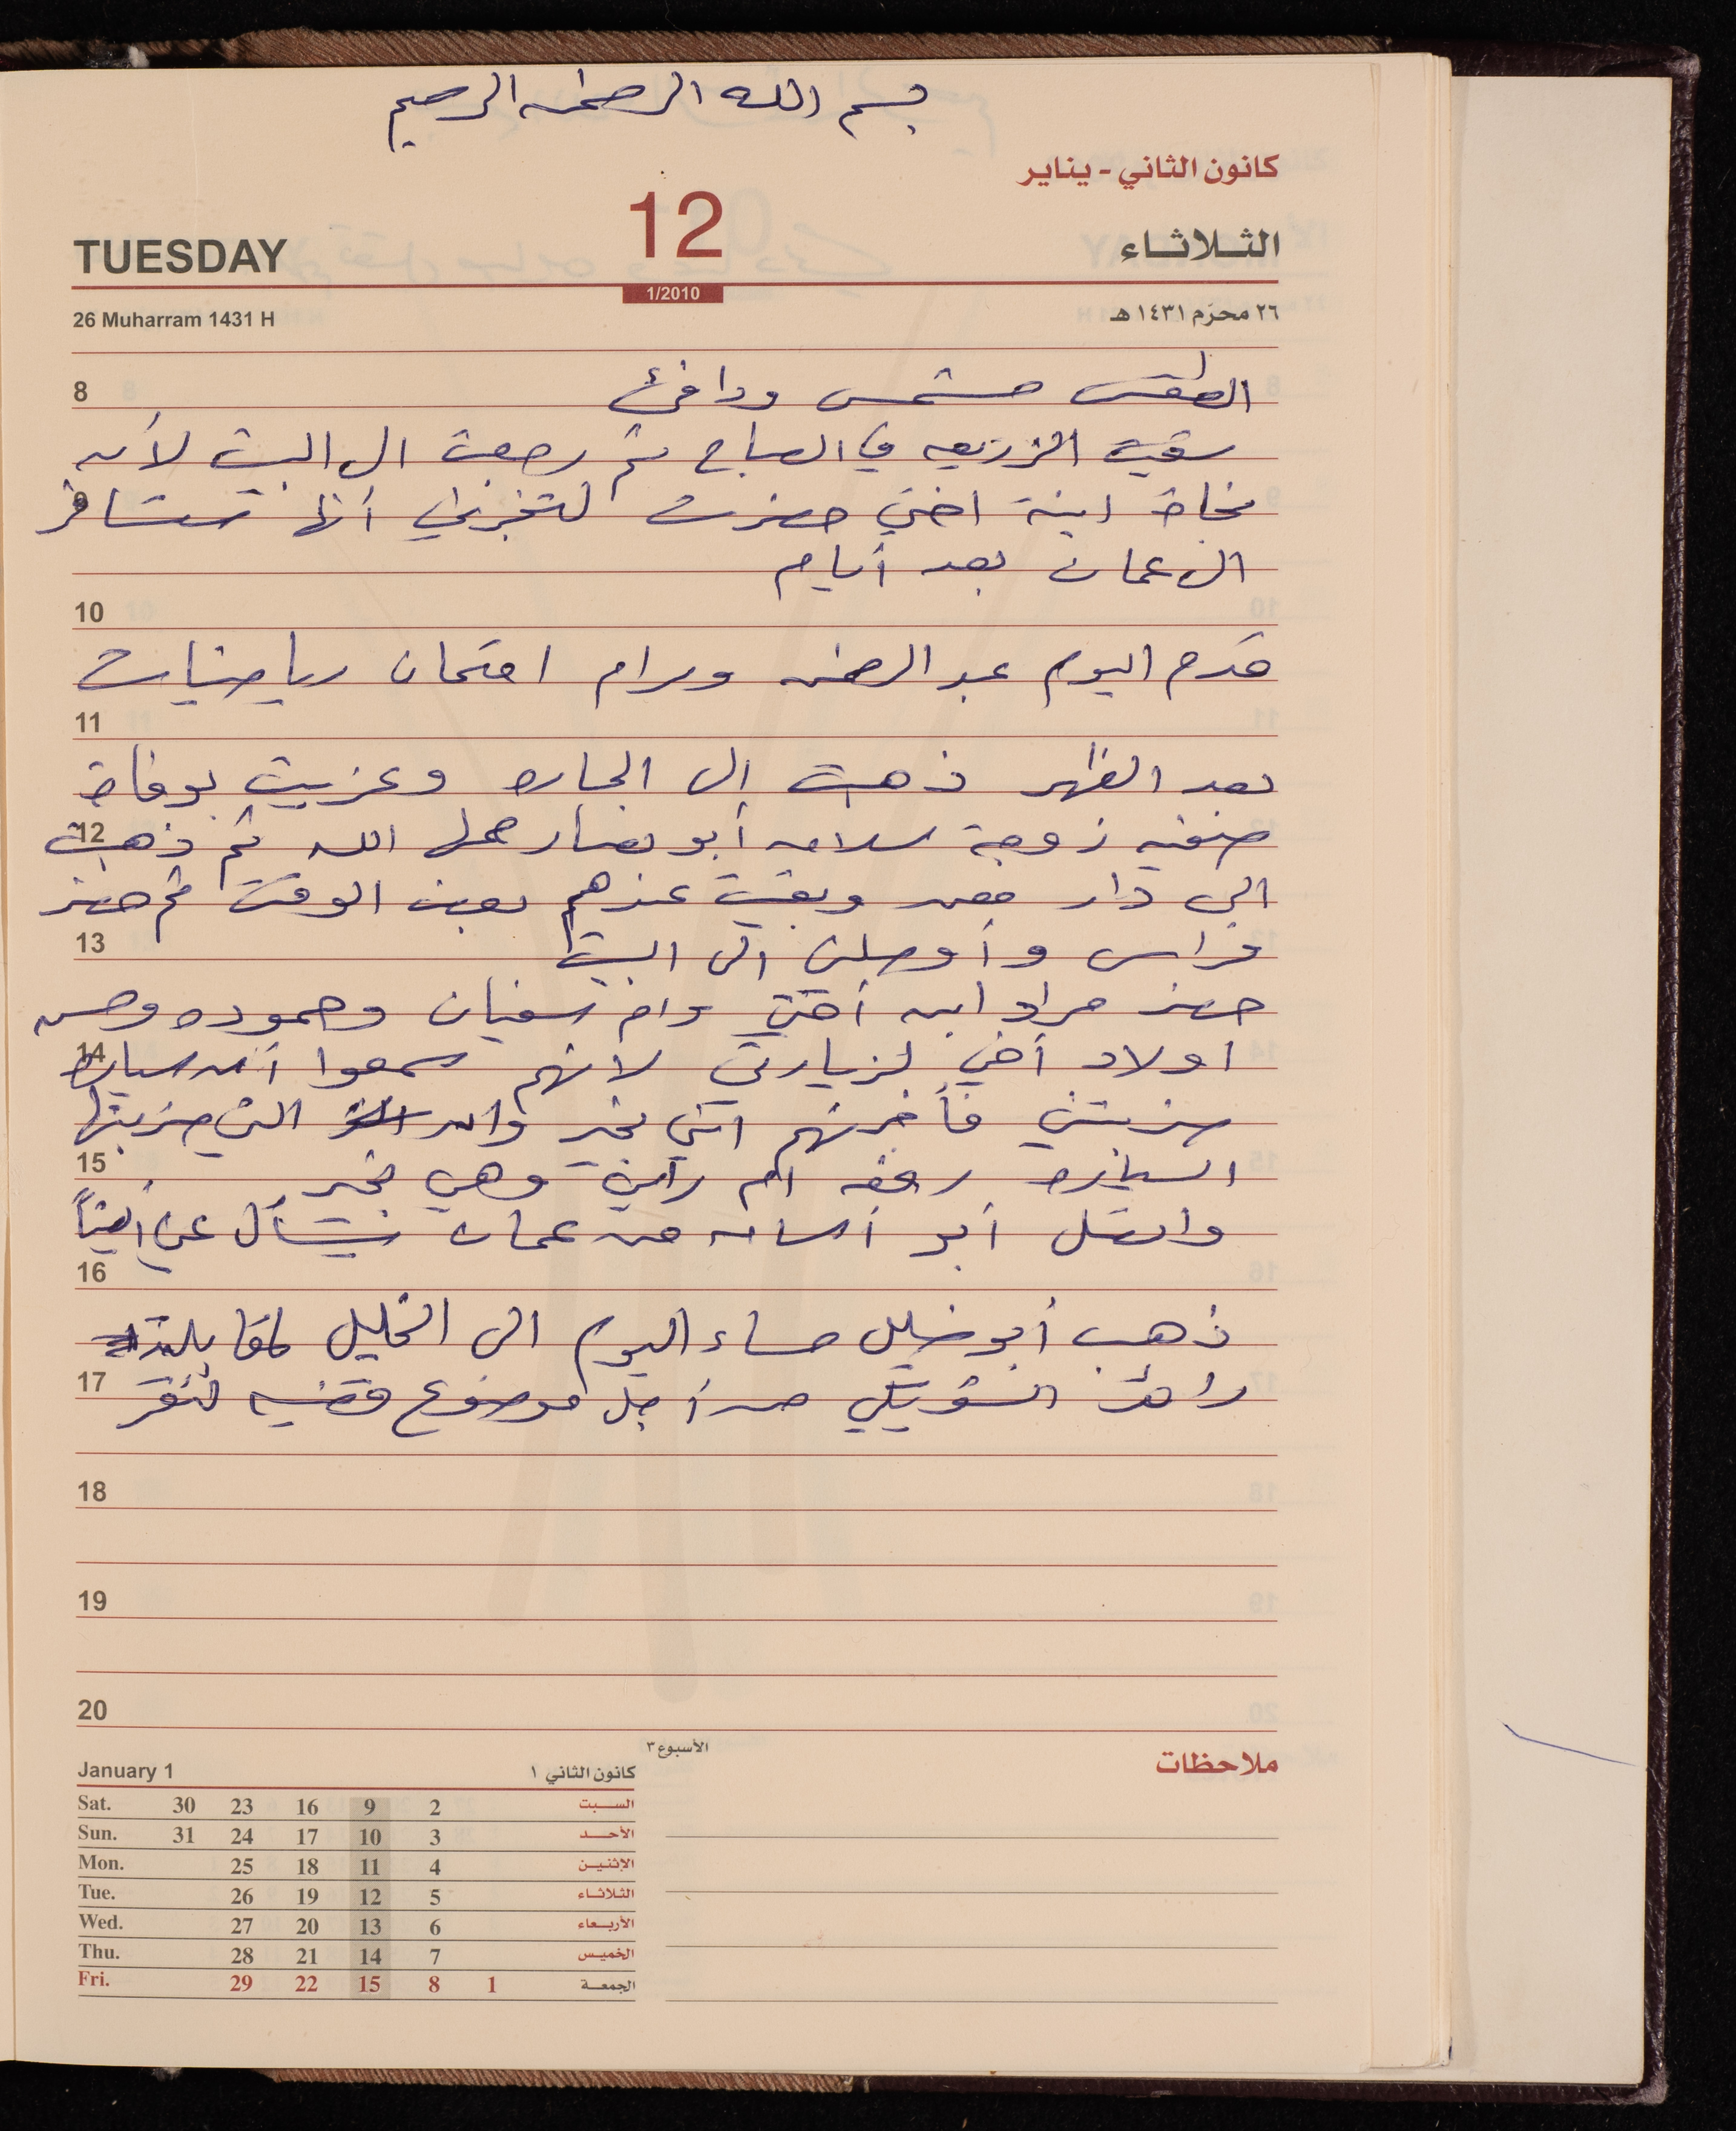 بسم الله الرحمن الرحيم
كانون الثاني - يناير
TUESDAY 12 الثلاثاء
1/2010
26 Muharram 1431 H ٢٦ محرّم ١٤٣١ هـ
8 الطقس مشمس ودافئ
سقيت الزريعه في الصباح ثم رجعت الى البيت لأن
9 نجاة ابنة اختي حضرت لتخبرني أنها ستسافر
الى عمان بعد أيام
10
قدم اليوم عبد الرحمن ومرام امتحان رياضيات
11
بعد الظهر ذهبت إلى الجاره وعزيت بوفاة
12 صفيه زوجة سلامه أبو نصار رحمها الله ثم ذهبت
الى دار معن وبقيت عندهم بعض الوقت ثم حضر
13 فراس وأوصلني الى البيت
حضر مراد ابن أختي وام سفيان وحموده وحسن
14 اولاد أخي لزيارتي لأنهم سمعوا أن سياره
ضربتني فأخبرتهم انني بخير وان التي ضربتها
15 السياره رفقه ام رامي وهي بخير
واتصل أبو أسامه من عمان يسأل عني أيضاً
16
ذهب أبو خليل مساء اليوم الى الخليل لمقابلة
17 رائف الشويكي من أجل موضوع قضيه
18
19
20
ملاحظات
الأسبوع ٣
January 1 كانون الثاني ١
Sat. 30 23 16 9 2 السبت
Sun. 31 24 17 10 3 الأحد
Mon. 25 18 11 4 الإثنين
Tue. 26 19 12 5 الثلاثاء
Wed. 27 20 13 6 الأربعاء
Thu. 28 21 14 7 الخميس
Fri. 29 22 15 8 1 الجمعة